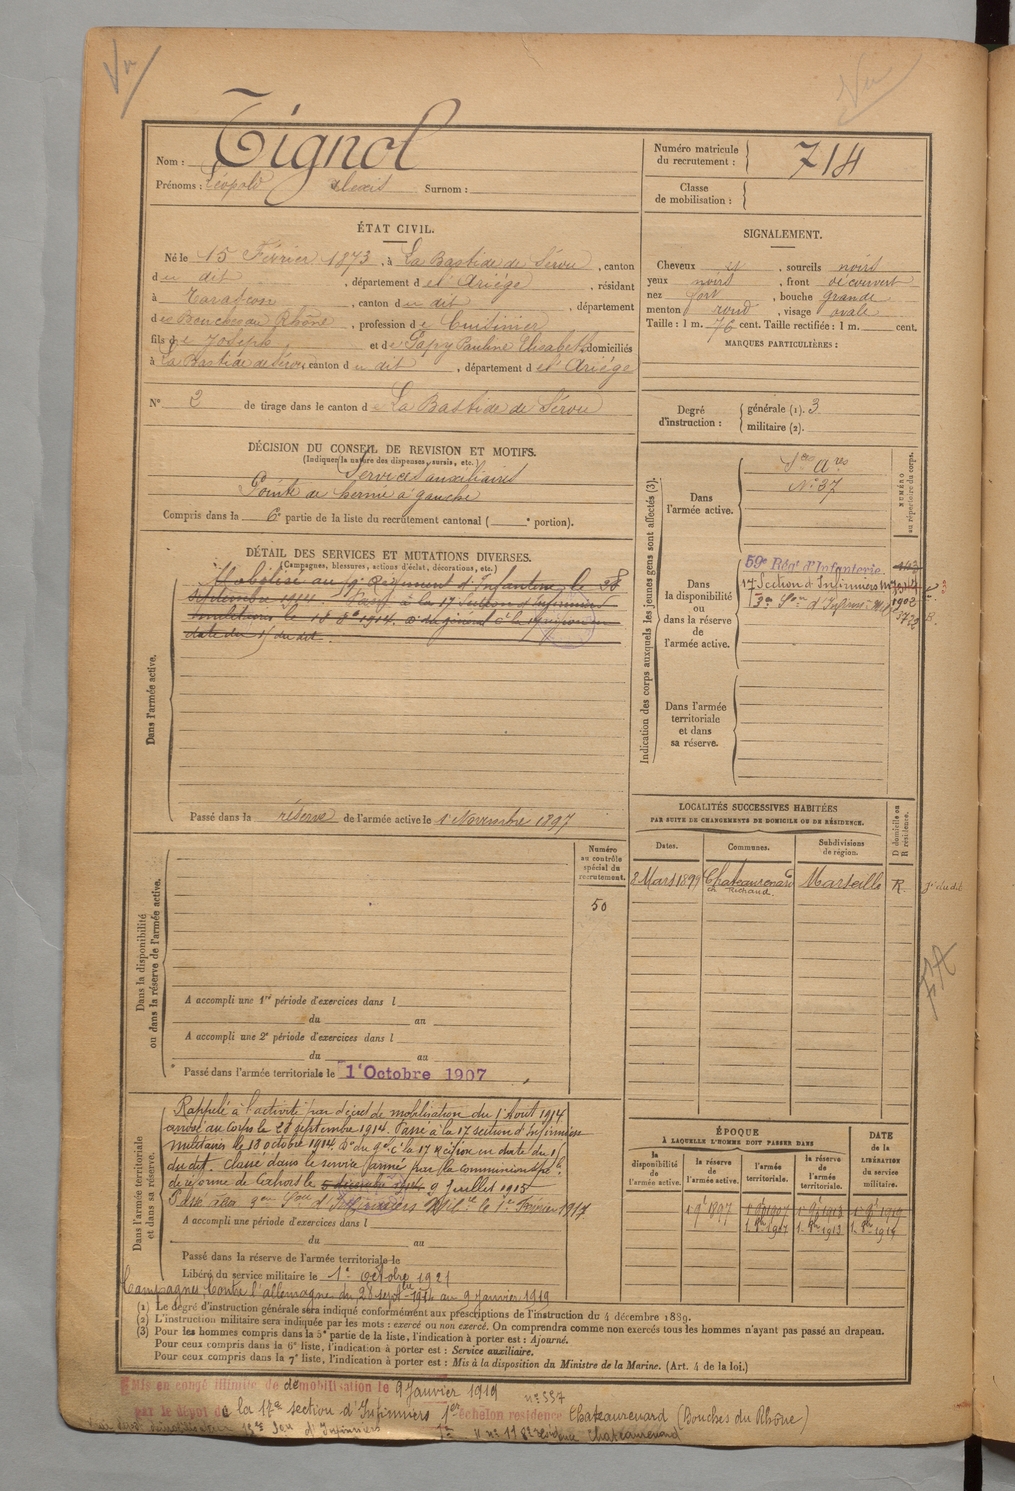 Vu
Vu
Nom : Tignol
Prénoms : Léopold Alexis Surnom :
Numéro matricule du recrutement : 714
Classe de mobilisation :
ÉTAT CIVIL.
Né le 15 Février 1873, à La Bastide de Sérou, canton
du dit, département d et Ariége, résidant
à Tarascon, canton du dit, département
des Bouches du Rhône, profession de Cuisinier
fils de Joseph et de Papy Pauline Elisabeth, domiciliés
à La Bastide de Sérou, canton du dit, département d et Ariége
N° 2 de tirage dans le canton de La Bastide de Sérou
SIGNALEMENT.
Cheveux , sourcils noirs
yeux noirs, front découvert
nez fort, bouche grande
menton rond, visage ovale
Taille : 1 m. 76 cent. Taille rectifiée : 1 m. cent.
MARQUES PARTICULIÈRES :
Degré d'instruction : générale (1). 3
militaire (2).
DÉCISION DU CONSEIL DE REVISION ET MOTIFS.
(Indiquer la nature des dispenses, sursis, etc.)
Services auxiliaires
Pointe de hernie à gauche
Compris dans la 6e partie de la liste du recrutement cantonal ( e portion).
DÉTAIL DES SERVICES ET MUTATIONS DIVERSES.
(Campagnes, blessures, actions d'éclat, décorations, etc.)
Dans l'armée active.
Mobilisé au Régiment d'Infanterie le 28
septembre 1914. Passé à la 17 Section d'Infirmiers
militaires le 18 8e 1914.
date du du dit.
Passé dans la réserve de l'armée active le 1 Novembre 1897
Indication des corps auxquels les jeunes gens sont affectés (3).
NUMÉRO au répertoire du corps.
Dans l'armée active.
Sces Ares
N° 37
Dans la disponibilité ou dans la réserve de l'armée active.
59e Régt d'Infanterie.
17 Section d'Infirmiers
1902
Dans l'armée territoriale et dans sa réserve.
LOCALITÉS SUCCESSIVES HABITÉES
PAR SUITE DE CHANGEMENTS DE DOMICILE OU DE RÉSIDENCE.
Dates. Communes. Subdivisions de région. D domicile ou R résidence.
2 Mars 1899 Chateaurenard Marseille R
Dans la disponibilité ou dans la réserve de l'armée active.
Numéro au contrôle spécial du recrutement.
50
A accompli une 1re période d'exercices dans l
du au
A accompli une 2e période d'exercices dans l
du au
Passé dans l'armée territoriale le 1er Octobre 1907
Dans l'armée territoriale et dans sa réserve.
Rappelé à l'activité par décret de mobilisation du 1 Août 1914
arrivé au corps le 28 septembre 1914. Passé à la 17 section d'Infirmiers
militaires le 18 octobre 1914. Don du gal Ct la 17 Région en date du 15
du dit. Classé dans le service armé par la commission Spéle
de réforme de Cahors le 5 décembre 1914 9 Juillet 1915
Passé à la Son d'Infirmiers Milres le 1er Février 1917
A accompli une période d'exercices dans l
du au
Passé dans la réserve de l'armée territoriale le
Libéré du service militaire le 1er octobre 1921
Campagnes Contre l'allemagne du 28 septbre 1914 au 9 Janvier 1919
ÉPOQUE
À LAQUELLE L'HOMME DOIT PASSER DANS
DATE de la LIBÉRATION du service militaire.
la disponibilité de l'armée active. la réserve de l'armée active. l'armée territoriale. la réserve de l'armée territoriale.
1 9bre 1897 1 8bre 1907 1 8bre 1913 1 8bre 1919
(1) Le degré d'instruction générale sera indiqué conformément aux prescriptions de l'instruction du 4 décembre 1889.
(2) L'instruction militaire sera indiquée par les mots : exercé ou non exercé. On comprendra comme non exercés tous les hommes n'ayant pas passé au drapeau.
(3) Pour les hommes compris dans la 5e partie de la liste, l'indication à porter est : Ajourné.
Pour ceux compris dans la 6e liste, l'indication à porter est : Service auxiliaire.
Pour ceux compris dans la 7e liste, l'indication à porter est : Mis à la disposition du Ministre de la Marine. (Art. 4 de la loi.)
Mis en congé illimité de démobilisation le 9 Janvier 1919 n° 557
par le dépôt de la 17e section d'Infirmiers 1er échelon residence Chateaurenard (Bouches du Rhône)
15e Son d'Infirmiers